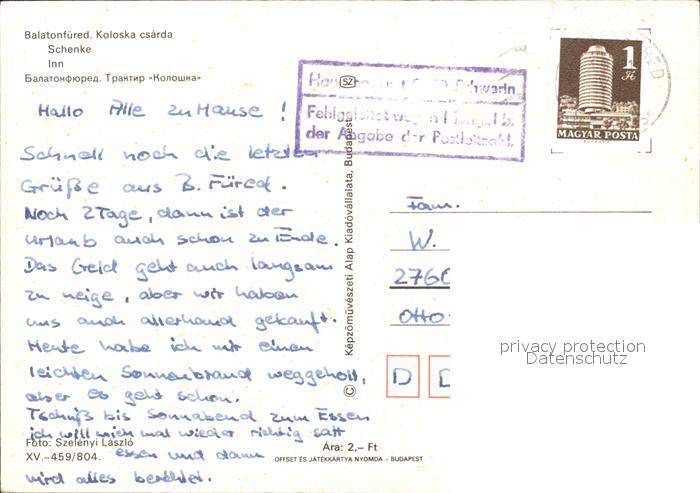 Balatonfüred. Koloska csárda
Schenke
Inn
Балатонфюред. Трактир «Колошка»
Hallo Alle zu Hause !
Schnell noch die letzten
Grüße aus B. Füred.
Noch 2 Tage, dann ist der
Urlaub auch schon zu Ende.
Das Geld geht auch langsam
zu neige, aber wir haben
uns auch allerhand gekauft.
Heute habe ich mir einen
leichten Sonnenbrand weggeholt,
aber es geht schon.
Tschüß bis Sonnabend zum Essen
ich will mich mal wieder richtig satt
essen und dann
wird alles berichtet.
Foto: Szelényi László
XV.–459/804.
Ára: 2,– Ft
OFFSET ÉS JÁTÉKKÁRTYA NYOMDA – BUDAPEST
© Képzőművészeti Alap Kiadóvállalata, Budapest
SZ
Schwerin
Fehlgeleitet wegen Mangel b.
der Angabe der Postleitzahl.
1
Ft
MAGYAR POSTA
RED
Fam.
W.
2760
Otto
D
privacy protection
Datenschutz